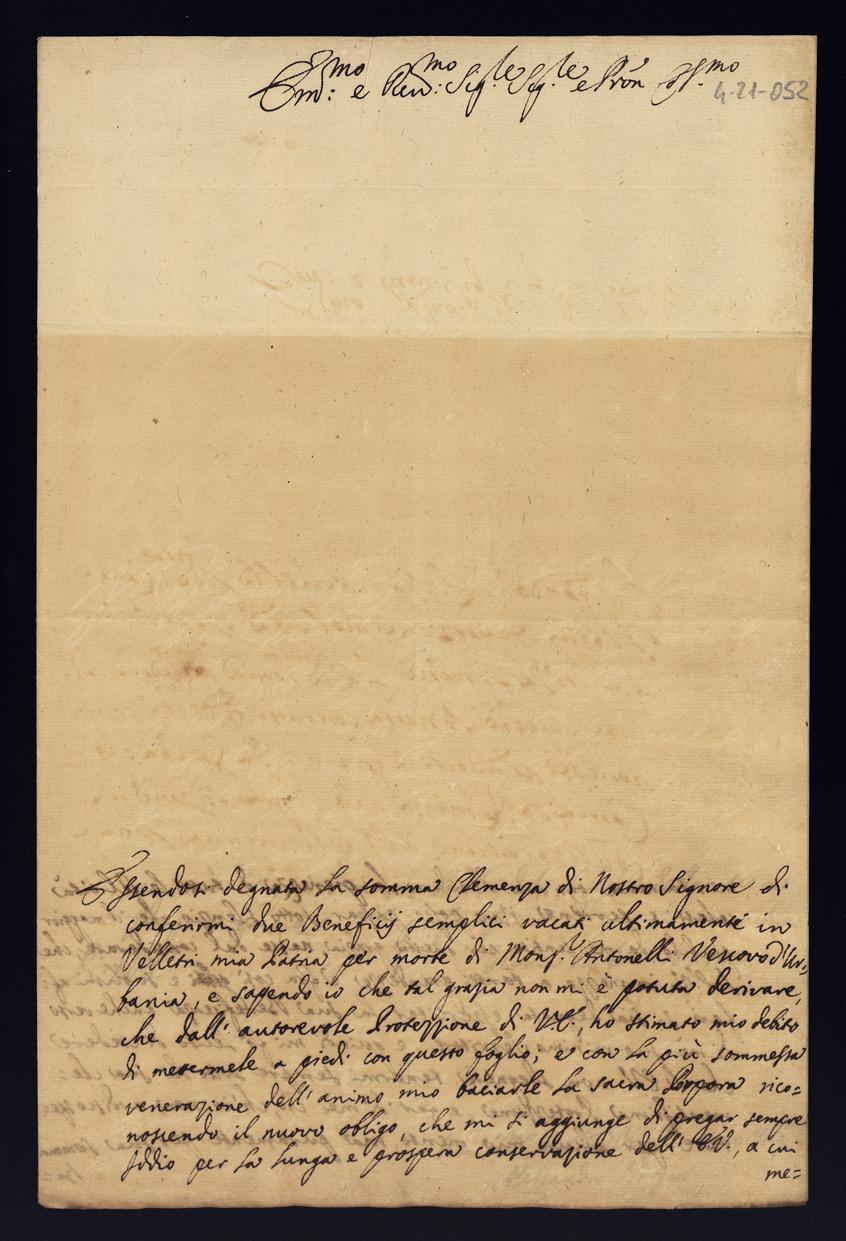 Em.mo: e Rev.mo: Sig.re Sig.re e Pron Col.mo
4-21-052
Essendosi degnata la somma Clemenza di Nostro Signore di
conferirmi due Beneficij semplici vacati ultimamente in
Velletri mia Patria per morte di Mons.r Antonelli Vescovo d'Ur=
bania, e sapendo io che tal grazia non mi è potuta derivare,
che dall' autorevole Protezzione di V.E., ho stimato mio debito
di metermele a piedi con questo foglio; e con la più sommessa
venerazione dell' animo mio baciarle la sacra Porpora rico=
noscendo il nuovo obligo, che mi si aggiunge di pregar sempre
Iddio per la lunga e prospera conservazione dell' E.V., a cui
me=